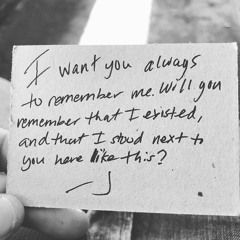 I want you always
to remember me. Will you
remember that I existed,
and that I stood next to
you here like this?
— J